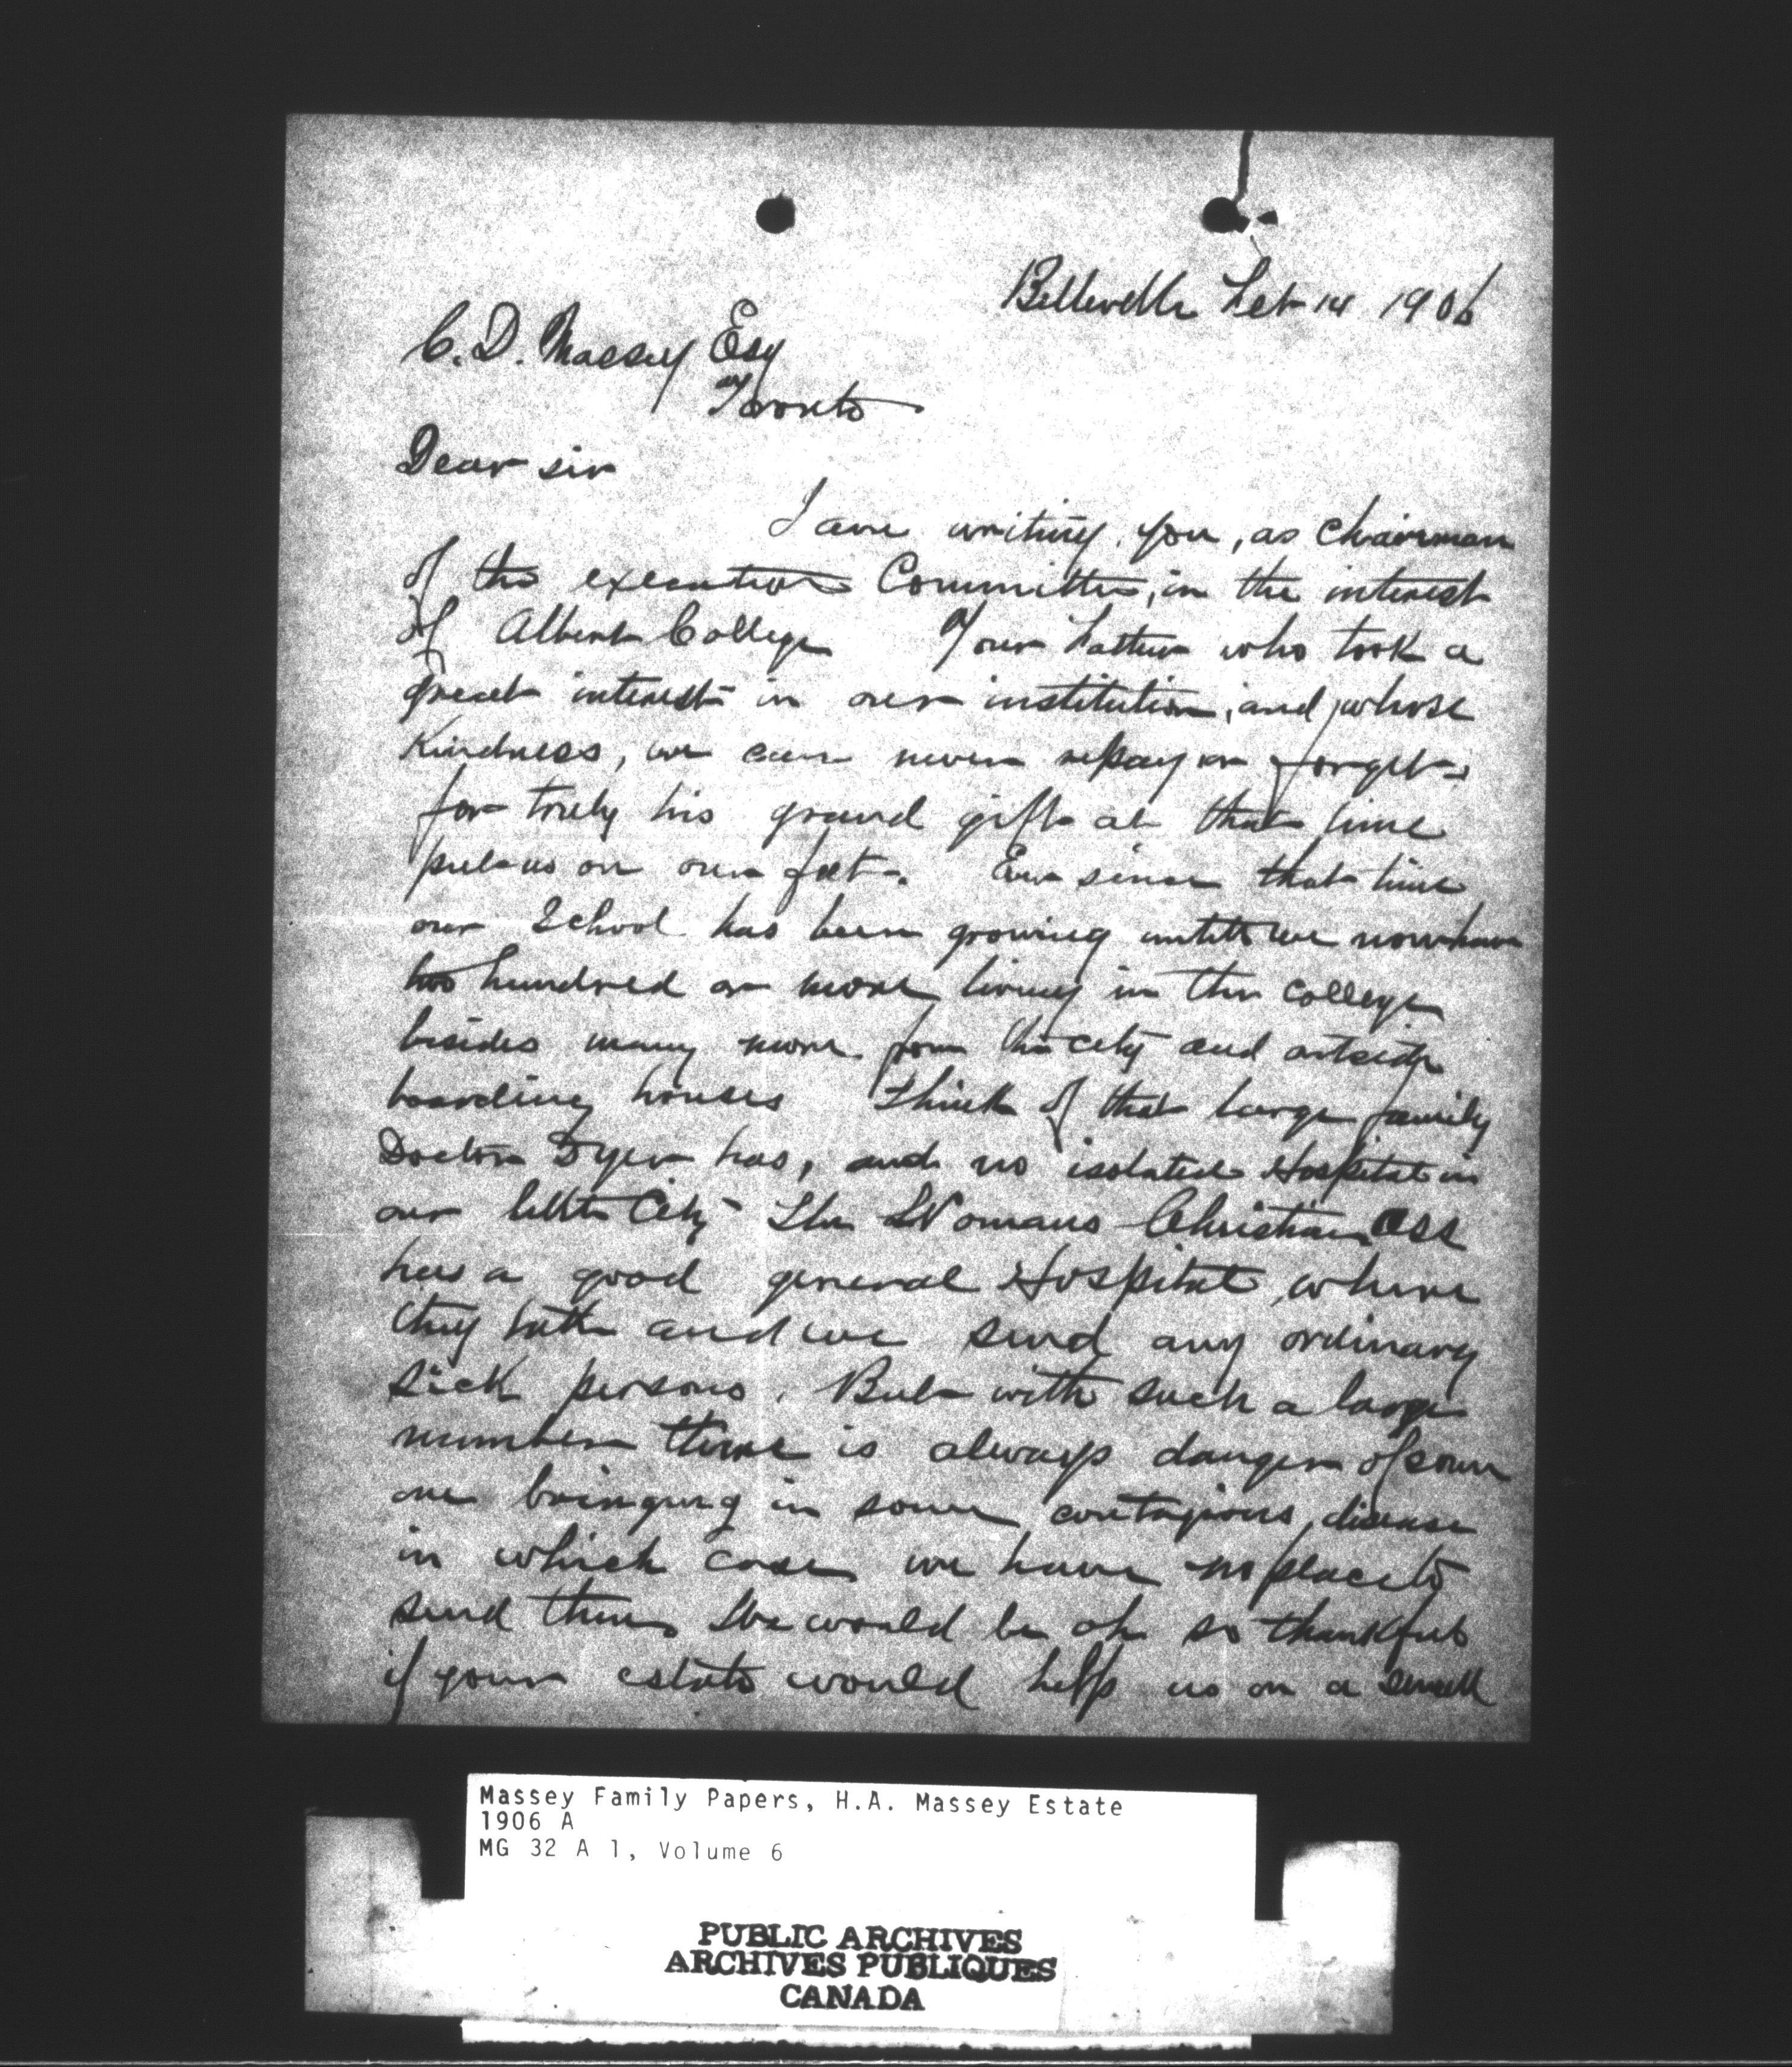 Belleville Feb 14 1906
C. D. Massey Esq
Toronto
Dear sir
I am writing you, as Chairman
of the executive Committee, in the interest
of Albert College Your Father who took a
great interest in our institution, and whose
Kindness, we can never repay or forget.
for truly his grand gift at that time
put us on our feet. Ever since that time
our School has been growing until we now have
two hundred or more living in the College
besides many more from the city and outside
boarding houses Think of that large family
Doctor Dyer has, and no isolated Hospital in
our little City - The Womans Christian Ass
has a good general Hospital, where
they take and we send any ordinary
sick persons. But with such a large
number there is always danger of some
one bringing in some contagious disease
in which case we have no place to
send them We would be oh so thankful
if your estate would help us on a small
Massey Family Papers, H.A. Massey Estate
1906 A
MG 32 A 1, Volume 6
PUBLIC ARCHIVES
ARCHIVES PUBLIQUES
CANADA